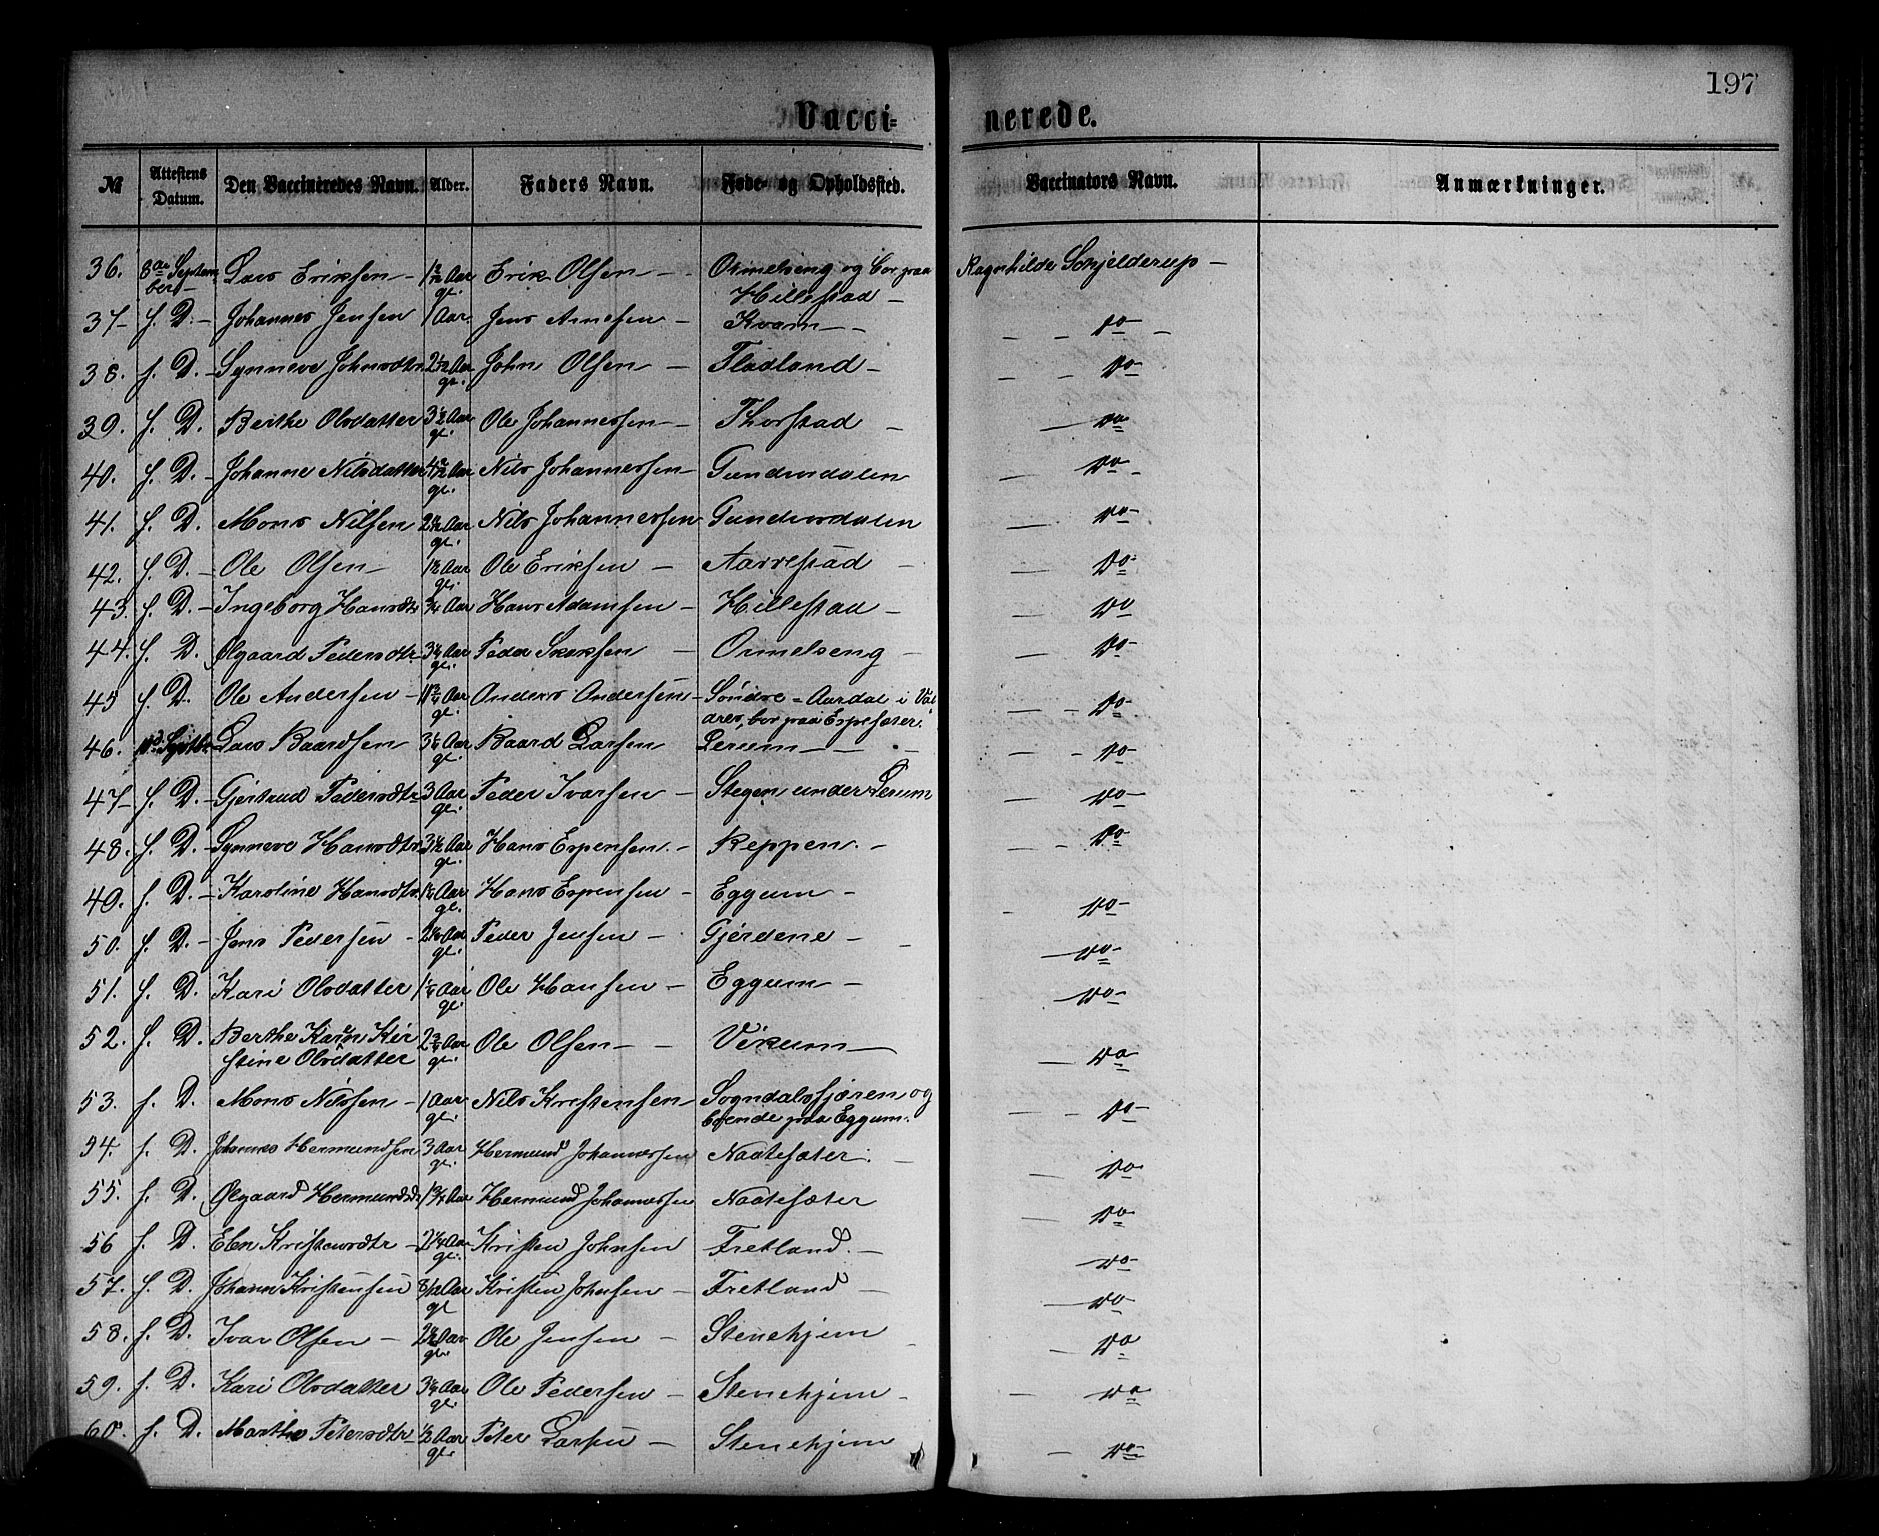 197
Vacci= nerede.
№ Attestens Datum. Den Vaccineredes Navn. Alder. Faders Navn. Føde- og Opholdssted. Vaccinators Navn. Anmærkninger.
36. 8de Septem Lars Eriksen – Aar Erik Olsen – Ormelseng og bor paa Ragnhilde Schjelderup –
ber – gl. Hillestad –
37 – f. D. – Johannes Jensen 1 Aar Jens Arnesen – Kvam – – – Do –
38. f. D. – Synneve Johnsdtr. Aar John Olsen – Fladland – – – Do –
gl.
39. f. D. Berthe Olsdatter 3½ Aar Ole Johannessen – Thorstad – – Do
gl.
40. f. D. – Johanne Nilsdatter Aar Nils Johannessen Gundersdalen – Do –
gl.
41. f. D. Mons Nilsen Aar Nils Johannessen Gundersdalen – Do –
gl.
42. f. D. – Ole Olsen – Aar Ole Eriksen – Aarrestad – – Do –
gl.
43. f. D. – Ingeborg Hansdtr Aar Hans Adamsen – Hillestad – – Do
44. f. D. Ølgaard Pedersdtr. Aar Peder – Ormelseng – – Do –
gl.
45 f. D. Ole Andersen – Aar Anders Andersen – Søndre = Aurdal i Val – – Do –
gl. dres, bor paa Espesæter.
46. Septbr Lars Baardsen Aar Baard Larsen Lerum – – – – – Do –
gl.
47 – f. D. – Gjertrud Pedersdtr 3 Aar Peder Ivarsen – Stegen under Lerum – Do –
gl.
48. f. D. – Synneve Hansdtr. 3½ Aar Hans Espensen. – Reppen. – – – Do –
gl.
49. f. D. – Karoline Hansdtr. Aar Hans Espensen – Eggum – – Do –
gl.
50. f. D. – Jens Pedersen – Aar Peder Jensen – Gjerdene – – – Do –
gl.
51. f. D. Kari Olsdatter Aar Ole Hansen – Eggum – – – Do –
gl.
52. f. D. Berthe Karen Kir Aar Ole Olsen – – Vikum – – Do
stine Olsdatter gl.
53. f. D. Mons Nilssen – 1 Aar Nils Kristensen Sogndalsfjæren og – – Do –
gl. boende paa Eggum.
54. f. D. Johannes Hermundsen 3 Aar Hermund Johannessen Naatesæter. – – Do
gl.
55. f. D. Ølgaard Hermundsdtr 1¾ Aar Hermund Johannessen Naatesæter – Do
56 f. D. Elen Kristensdtr – 2¼ Aar Kristen Johnsen Fretland. – – Do –
gl.
57. f. D. Johann Kristensen Aar Kristen Johnsen – Fretland – – Do
gl
58. f. D. Ivar Olsen – Aar Ole Jensen – Stenehjem – – Do
gl.
59. f. D. Kari Olsdatter Aar Ole Pedersen – Stenehjem – – Do
gl.
60. f. D. Marthe Petersdtr – ½ Aar Peter Larsen – Stenehjem – Do –
gl.